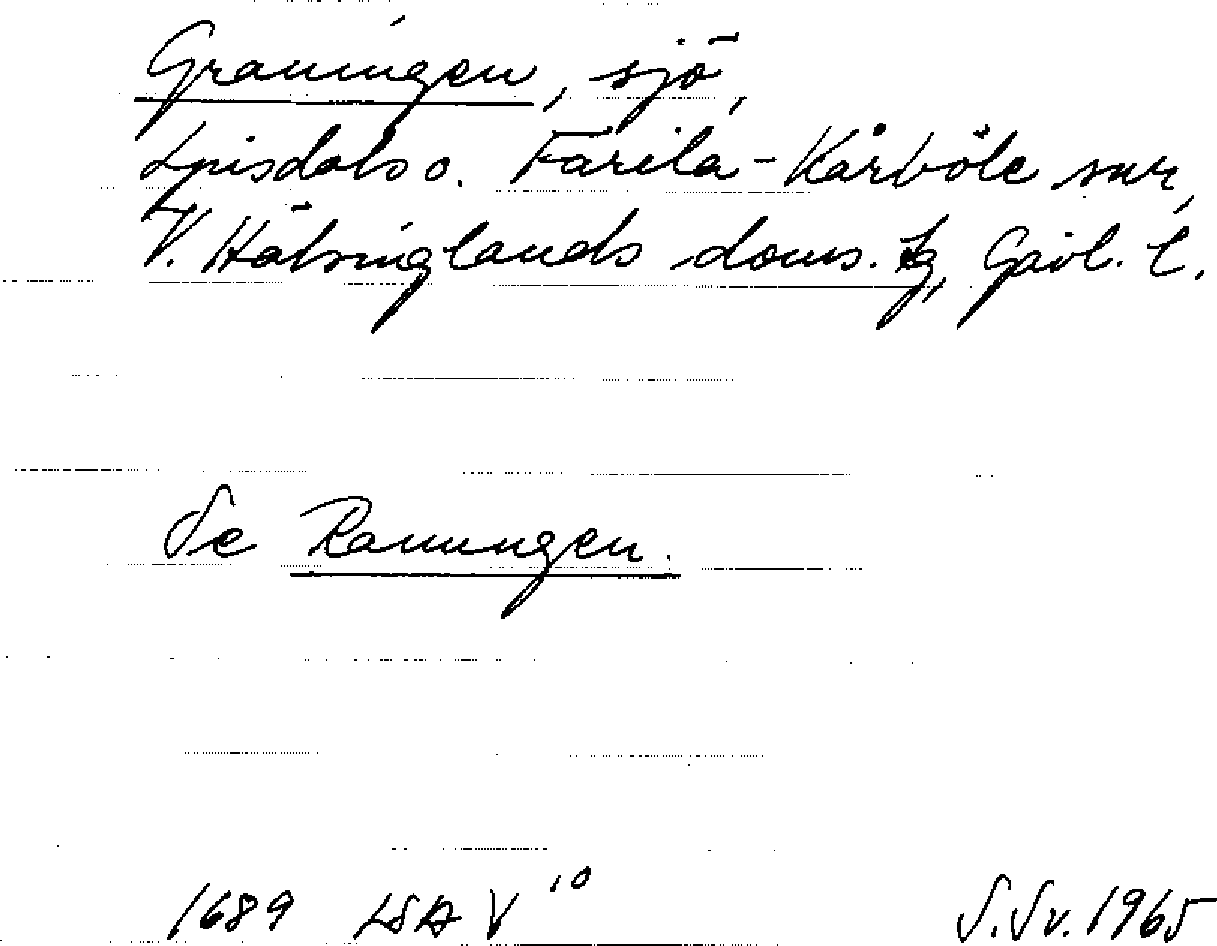 Graningen, sjö,
Ljusdals o. Färila-Kårböle snr,
V. Hälsinglands doms. tg, Gävl. l.
Se Ranungen.
1689 LSA V 10
S.Sv. 1965